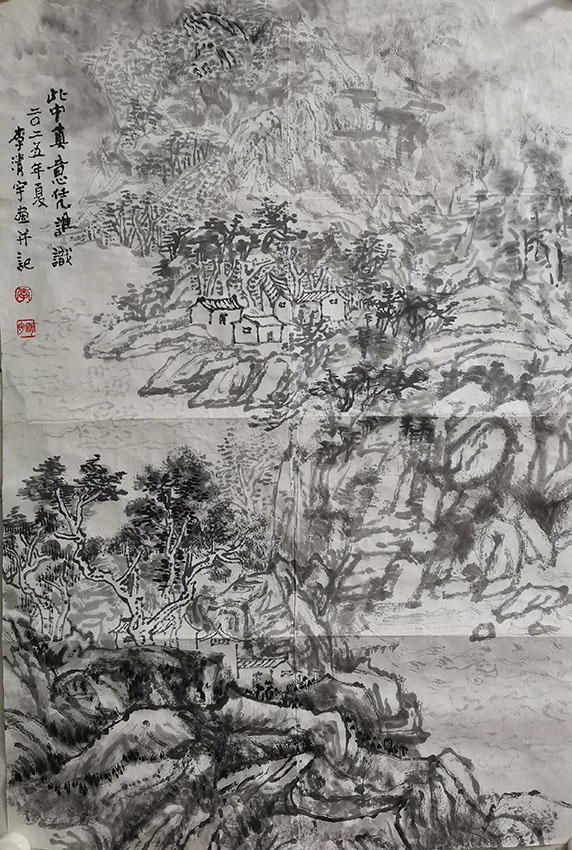 此中真意凭谁识
二〇二五年夏
李清宇画并记